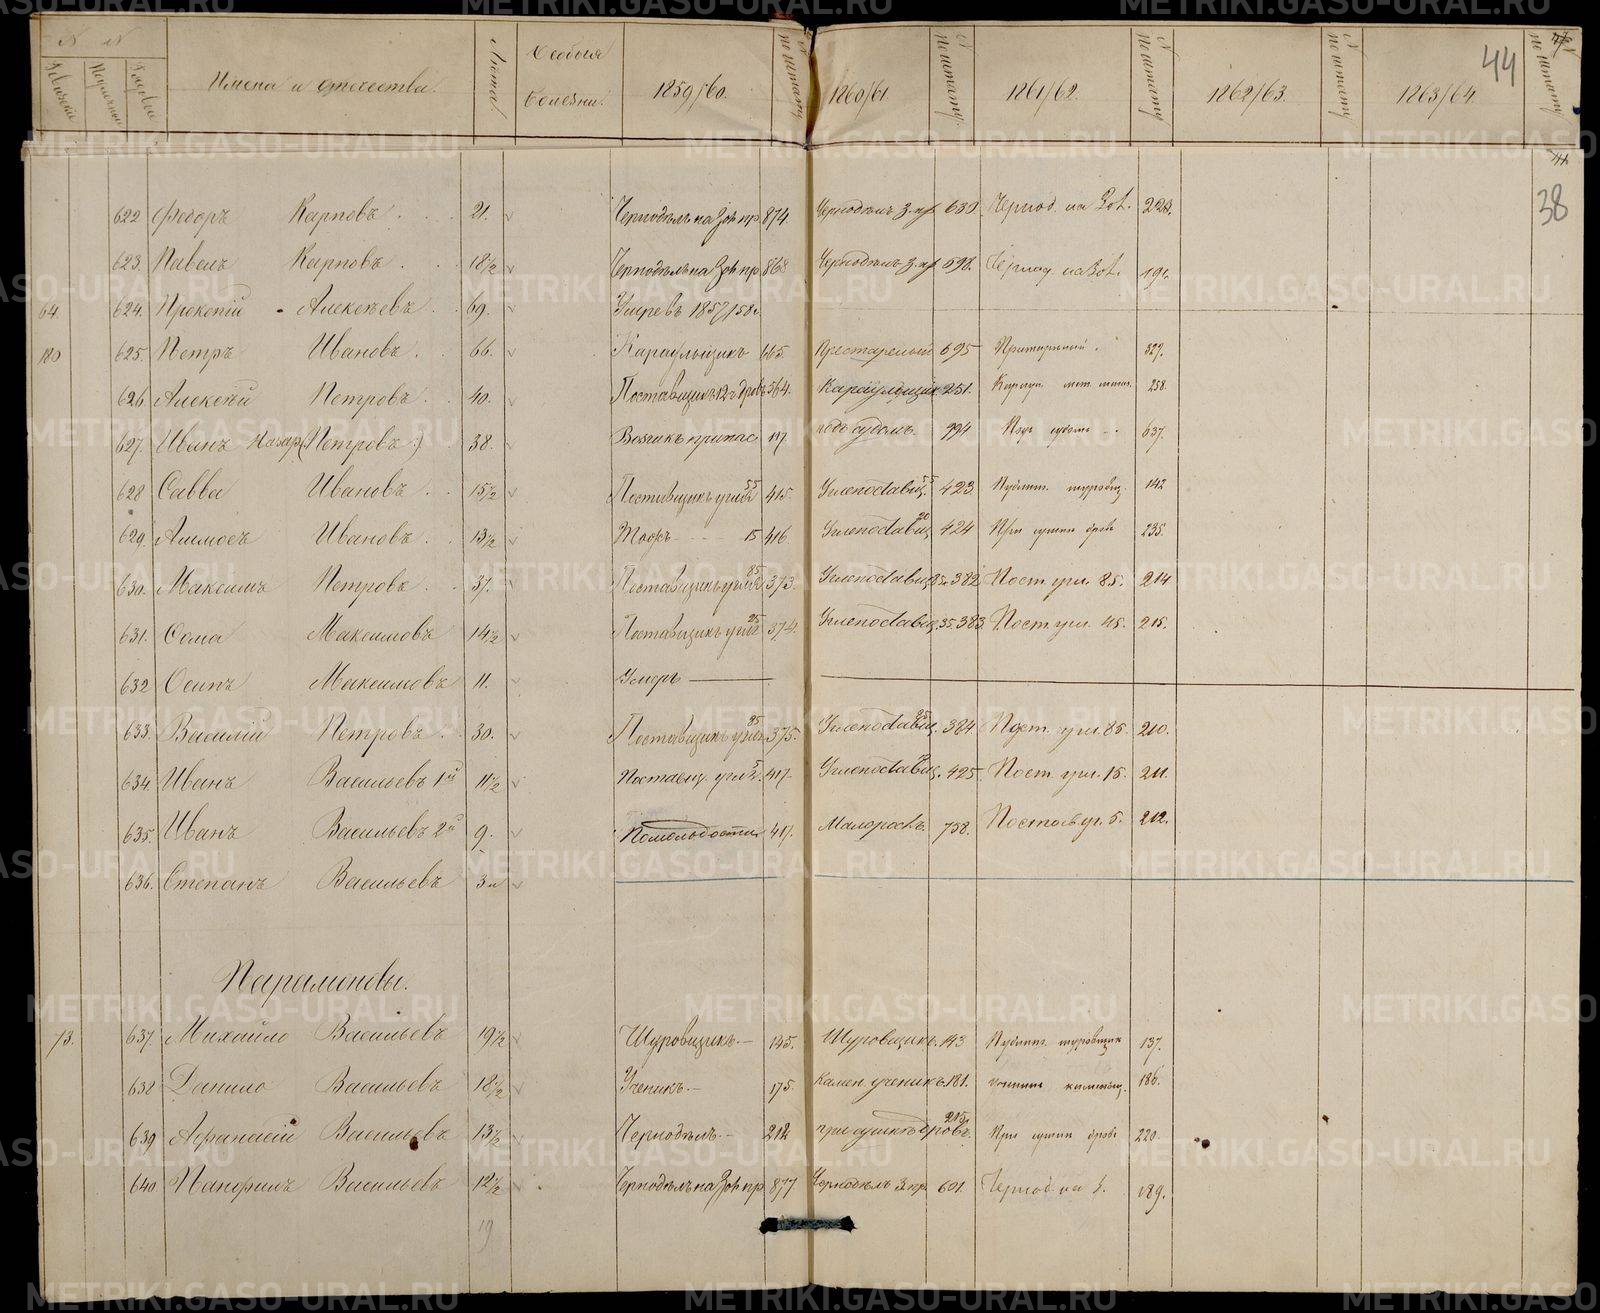 N N Имена и отечества. Лѣта. Особыя болѣзни. 1859/60. N по штату 1860/61. N по штату. 1861/62. N по штату 1862/63. N по штату 1863/64. N по штату
44
38
622 Ѳедоръ Карповъ 21. Чернодѣлъ на Зол. пр. 874. Чернодѣлъ З. пр. 630 Чернод. на Зол.
623. Павелъ Карповъ 18½ Чернодѣлъ на Зол. пр. 868 Чернодѣлъ З. пр. 598. Чернод. на Зол. 191.
64. 624. Прокопій Алексѣевъ 69. Умре въ 1857/58г.
180 625. Петръ Ивановъ 66. Караульщикъ 665. Престарелый 695 327.
626. Алексѣй Петровъ 40. Поставщикъ 12ч дровъ 564. Караульщикъ 251. 258.
627. Иванъ Назар. (Петровъ:) 38. Возчикъ припас. 117. подъ судомъ. 994 Подъ судомъ 637.
628 Савва Ивановъ 15½ Поставщикъ угля 55 415. Углепоставщ. 55 423. 142
629. Ивановъ 13½ Тожъ 15 416. Углепоставщ. 20 424 При сушкѣ дровъ 235.
630. Максимъ Петровъ 37. Поставщикъ угля 85 373. Углепоставщ. 85. 382. Пост. угл. 85. 214
631. Ѳома Максимовъ 14½ Поставщикъ угля 25 374. Углепоставщ. 35. 383. Пост. угл. 45. 215.
632 Осипъ Максимовъ 11. Умеръ
633. Василій Петровъ 30. Поставщикъ угля 85 375. Углепоставщ. 85 384 Пост. угл. 85. 210.
634. Иванъ Васильевъ 1й 11½ Поставщ. угля 5 417. Углепоставщ. 425 Пост. угл. 15. 211.
635. Иванъ Васильевъ 2й 9. Помолодости 417. Малоросл. 758. Постав. уг. 5. 212.
636. Степанъ Васильевъ 3н
Парамоновы.
73. 637. Михайло Васильевъ 19½ Шуровщикъ 145. Шуровщикъ. 143 Пудлинг. шуровщик 137.
638 Данило Васильевъ 18½ Ученикъ 175. Камен. ученикъ 181. 186.
639 Аѳанасій Васильевъ 13½ Чернодѣлъ 212 при сушкѣ дровъ. 215 При сушкѣ дровъ 220.
640 Панфилъ Васильевъ 12½ Чернодѣлъ на Зол. пр. 877 Чернодѣлъ З. пр. 601. Чернод. на З. 189.
19
METRIKI.GASO-URAL.RU